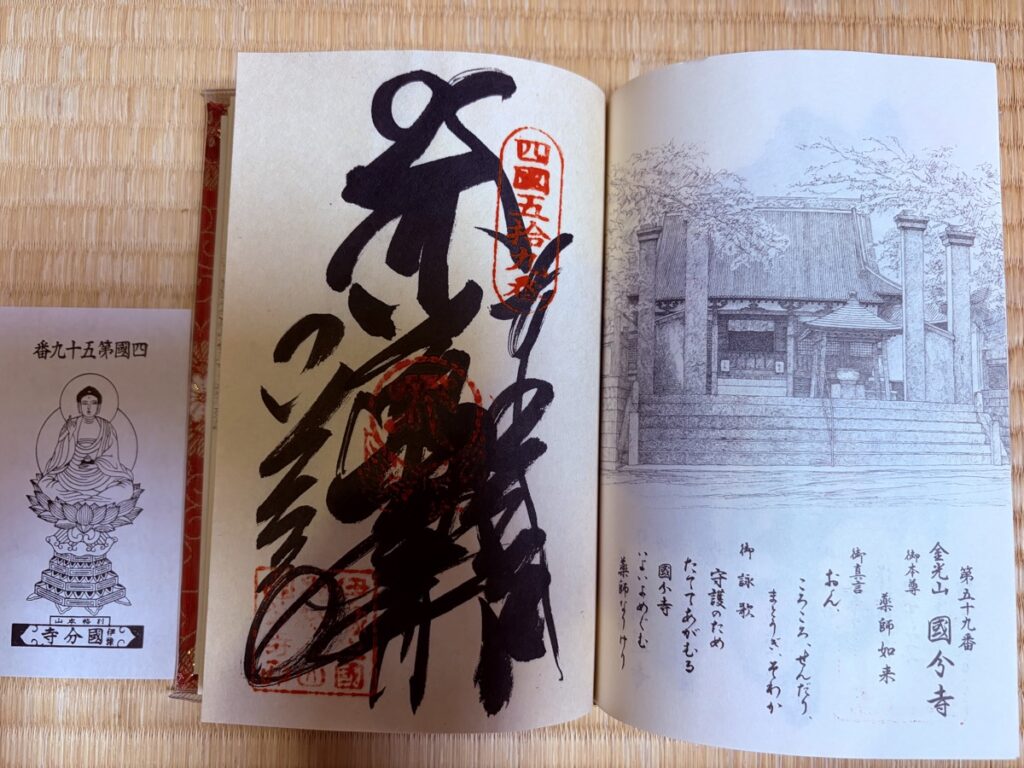 四國第五十九番
別格本山
伊豫
國分寺
四國五拾九番
第五十九番
金光山 國分寺
御本尊
薬師如来
御真言
おん
ころころ、せんだり、
まとうぎ、そわか
御詠歌
守護のため
たててあがむる
國分寺
いよいよめぐむ
薬師なりけり